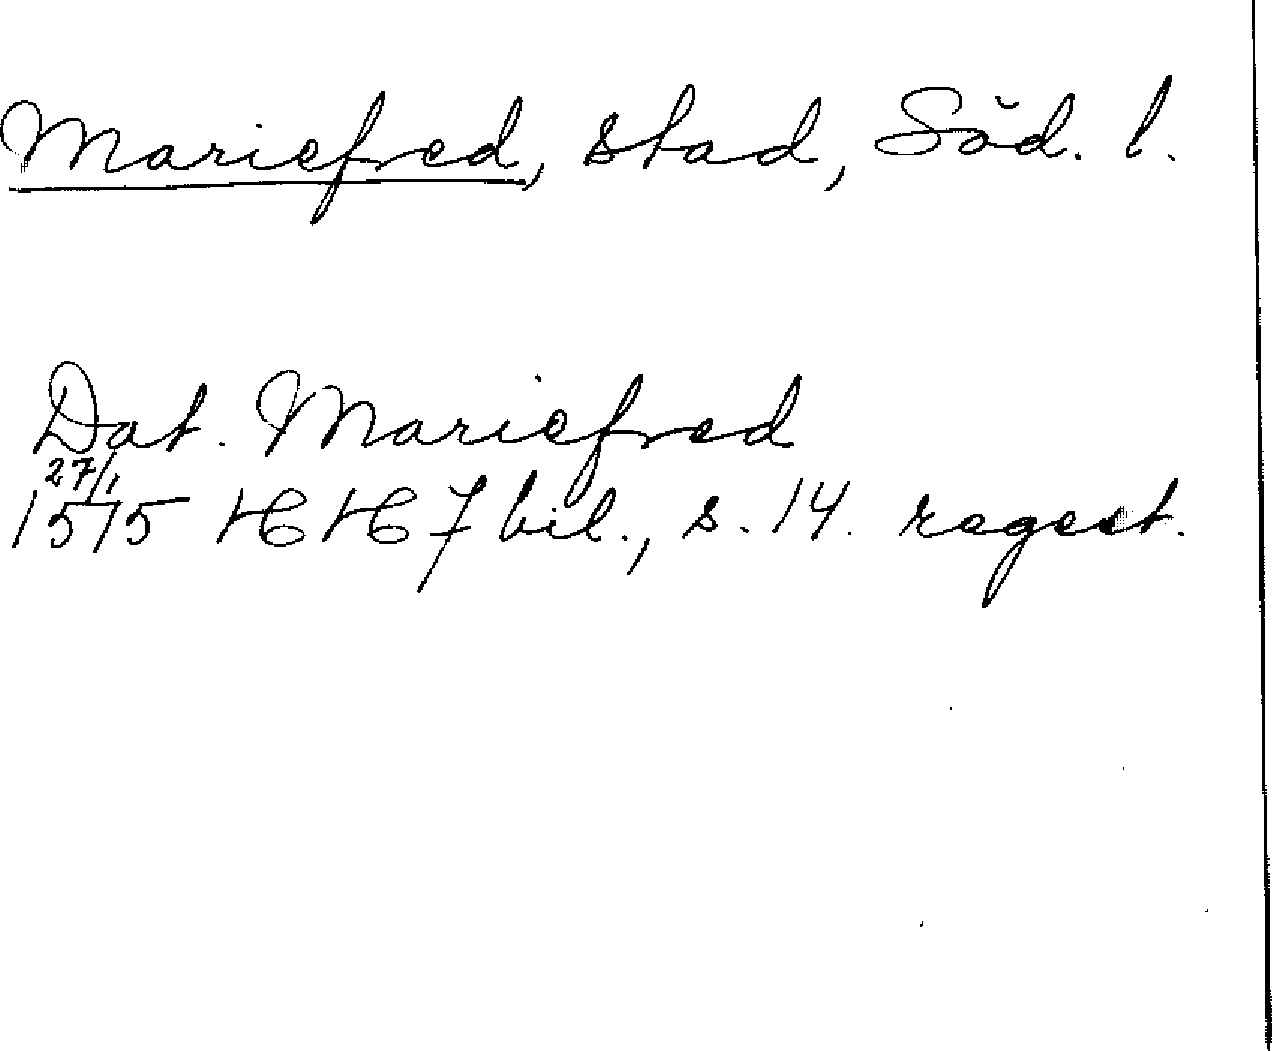 Mariefred, stad, Söd. l.
Dat. Mariefred
27/1
1575 HH 7 bil., s. 14. regest.